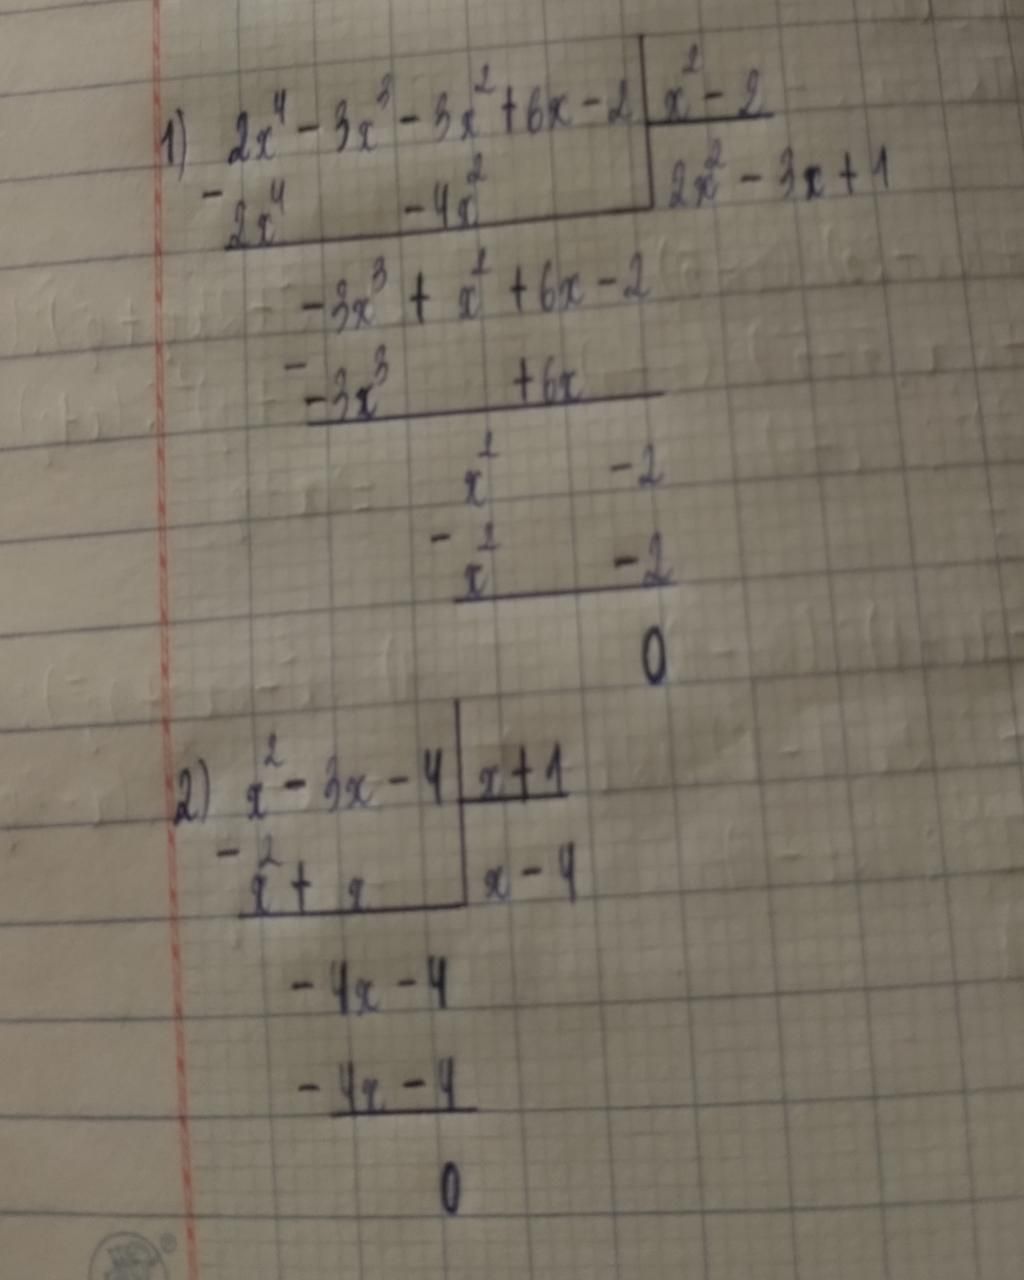 1) 2x⁴ - 3x³ - 3x² + 6x - 2 | x² - 2
- 2x⁴ - 4x² | 2x² - 3x + 1
- 3x³ + x² + 6x - 2
- - 3x³ + 6x
x² - 2
- x² - 2
0
2) x² - 3x - 4 | x + 1
- x² + x | x - 4
- 4x - 4
- 4x - 4
0